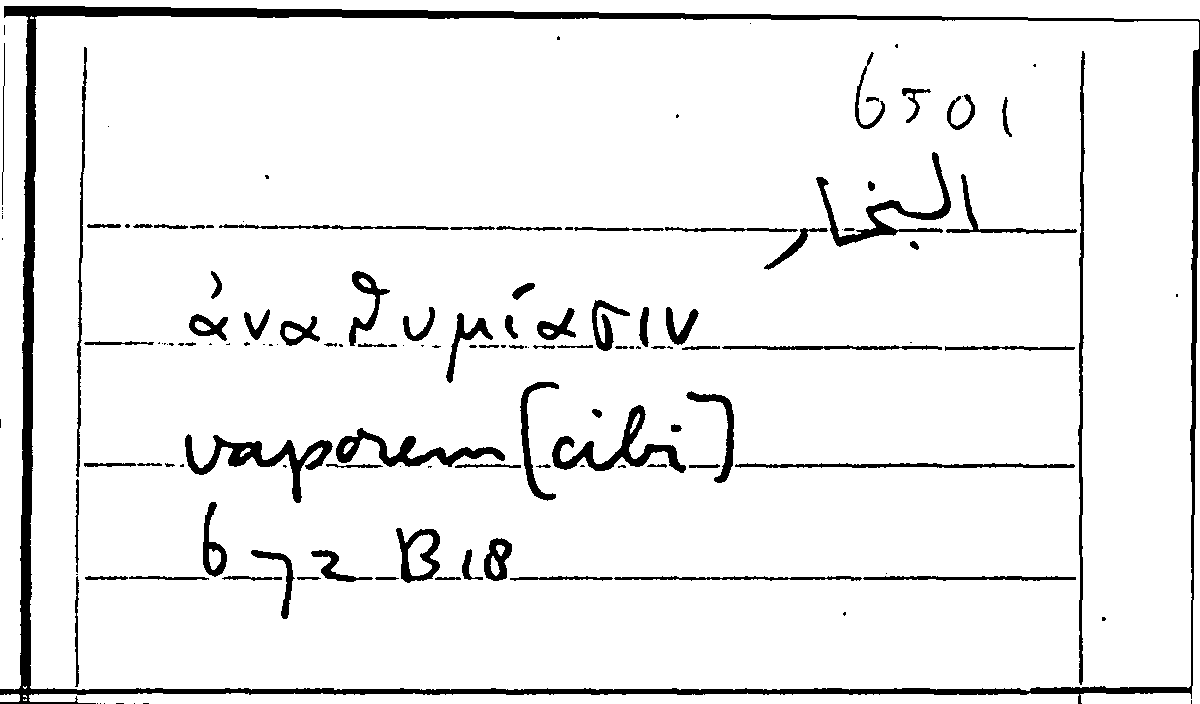 6501
البخار
ἀναθυμίασιν
vaporem [cibi]
672 B 18